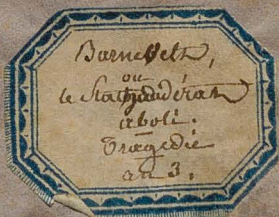 Barnevelt,
ou
le Stathoudérat
aboli.
Tragedie
an 3.